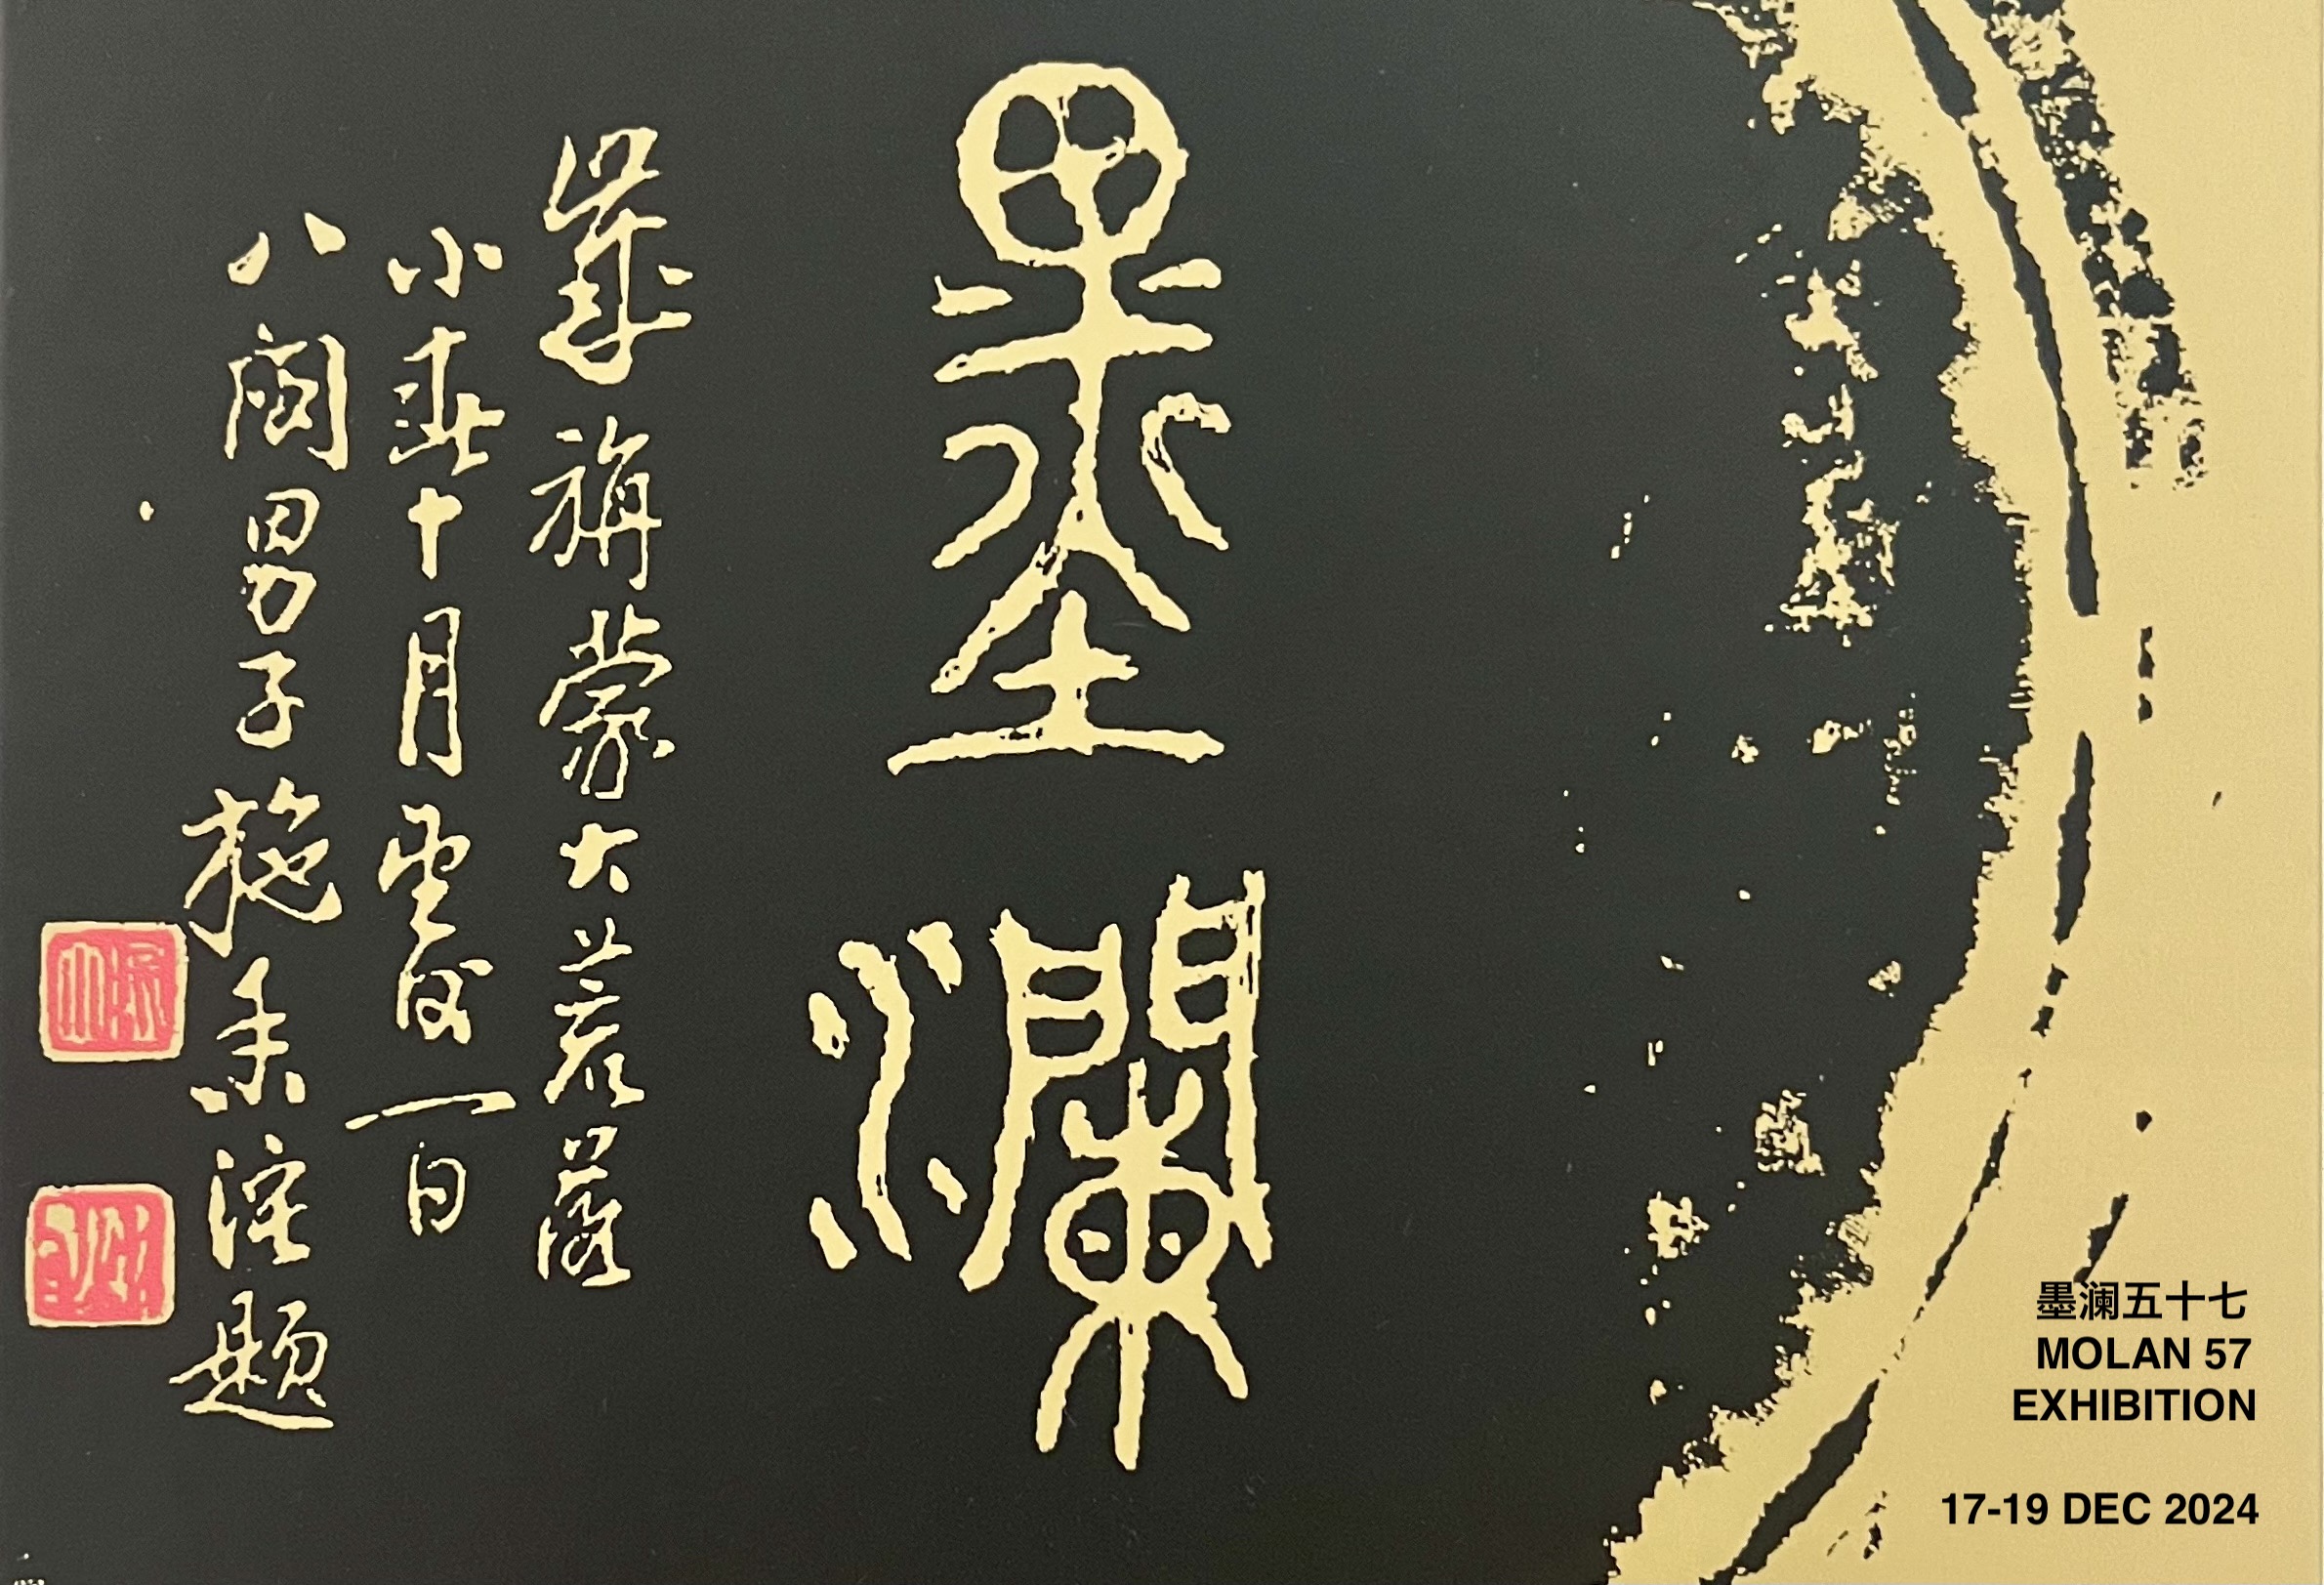 墨瀾
歲旃蒙大荒落
小春十月望後一日
八閩男子施香沱題
墨澜五十七
MOLAN 57
EXHIBITION
17-19 DEC 2024